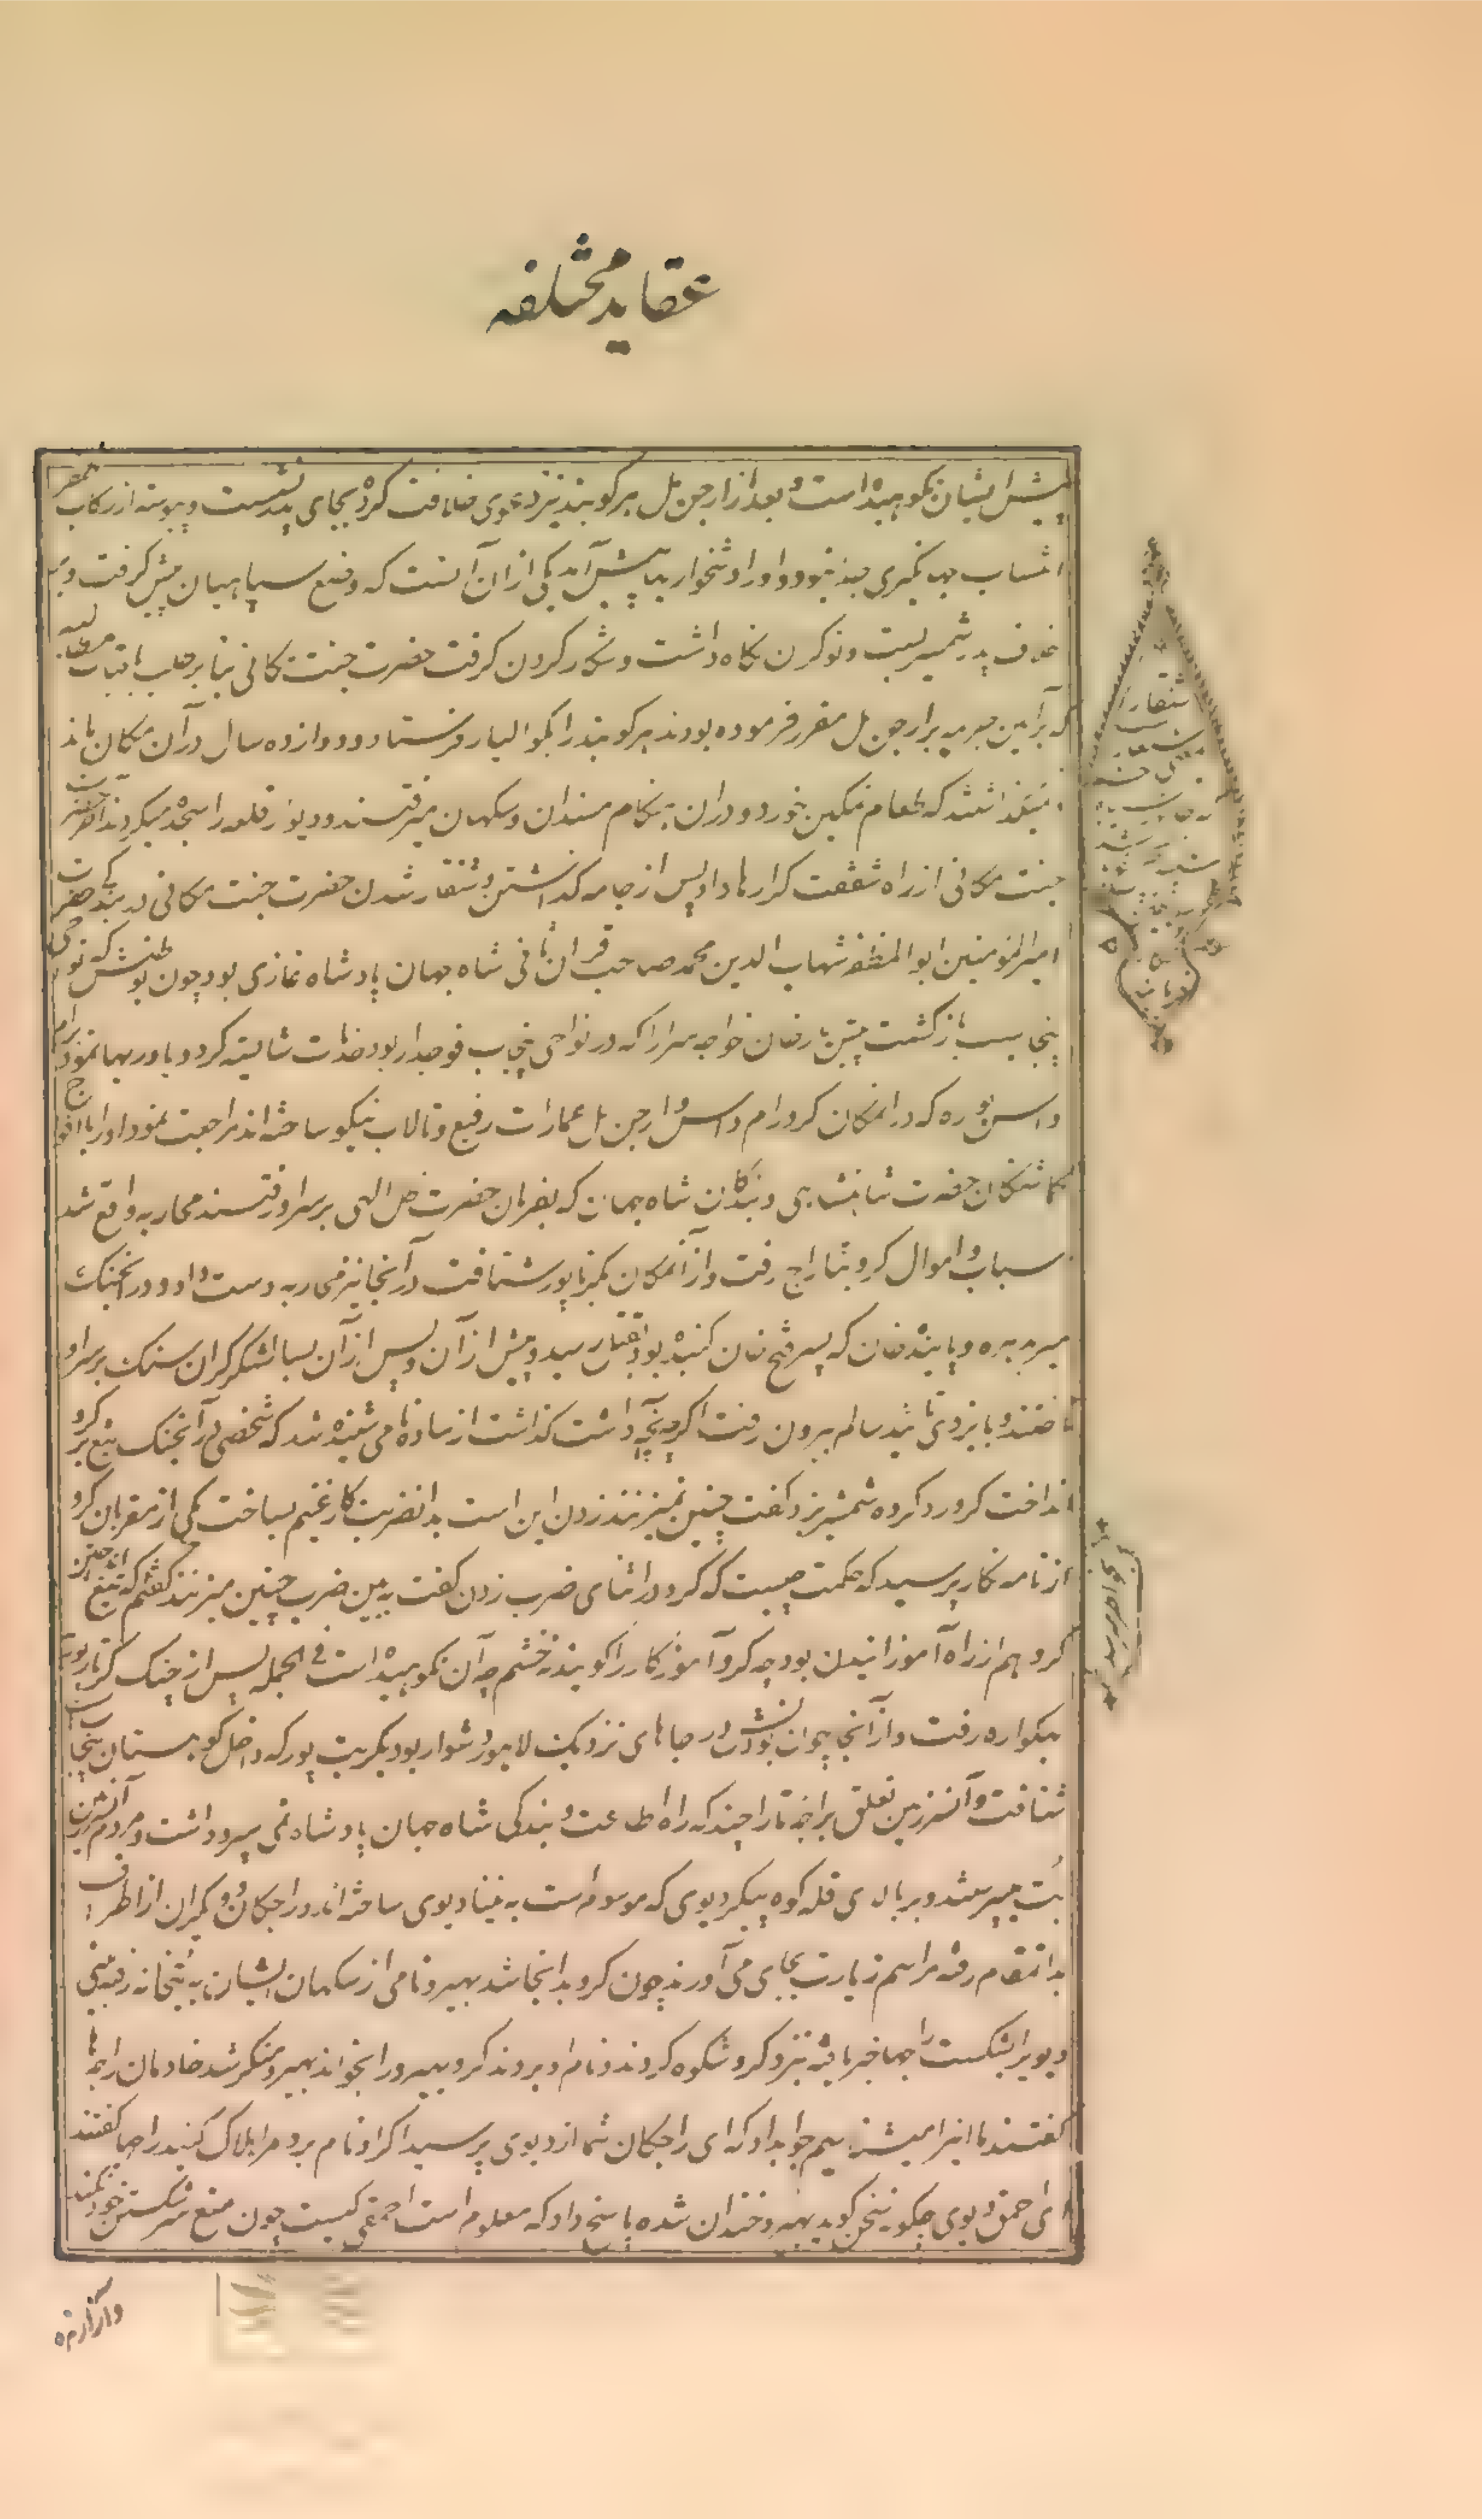 عقاید مختلفه
پیش ایشان نکوهیده است و بعد از ارجن مل هرکوبند نیز دعوی خلافت کرد و بجای پدر نشست و پیوسته از رکاب ظفر
انتساب جهانگیری جدا نبود و او را دشخواریها پیش آمد یکی از آن آنست که وضع سپاهیان پیش گرفت و
خلاف پدر شمشیر بست و نوکران نگاه داشت و شکار کردن گرفت حضرت جنت مکانی بنا بر طلب بقیات مطالبه
که برآیین جریمه بر ارجون مل مقرر فرموده بودند هرکوبند را بکوالیار فرستاد و دوازده سال در آن مکان ماند
نمیگذاشتند که طعام نمکین بخورد و در آن هنگام مسندان و سکهان میرفتند و دیوار قلعه را سجده میکردند آخر حضرت
جنت مکانی از راه شفقت کرو را رها داد و پس از جامه گذاشتن و شنقار شدن حضرت جنت مکانی در بندگی حضرت
امیرالمؤمنین ابو المظفر شهاب الدین محمد صاحب قران ثانی شاه جهان پادشاه غازی بود چون بوطنش که نواحی
پنجابست بازگشت بیتین خان خواجه سرا را که در نواحی پنجاب فوجدار بود خدمات شایسته کرد و یاوریها نمود برام
داس پوره که در انمکان کرو رام داس و ارجن مل عمارات رفیع و تالاب نیکو ساخته اند مراجعت نمود او را با افواج
گماشتگان حضرت شاهنشاهی و بندگان شاه جهان که بفرمان حضرت ظل الهی بر سر او رفتند محاربه واقع شد
اسباب و اموال کرو بتاراج رفت و از آنمکان بکرتارپور شتافت در آنجا نیز محاربه دست داد و در آنجنگ
میر بدهره و پاینده خان که پسر فتح خان کنیده بود بقتل رسید و پیش از آن و پس از آن بسا لشکر گران سنگ بر سر او
تاختند و بایزدی تائید سالم بیرون رفت اگرچه آنچه داشت گذاشت از ساده نامی شنیده شد که شخصی در آنجنگ تیغ بر کرو
انداخت کرو رد کرده شمشیر بزد و گفت چنین نمیزنند زدن این است بدانضربت کار غنیم بساخت یکی از مقربان کرو
از نامه نگار پرسید که حکمت چیست که کرو در اثنای ضرب زدن گفت ببین ضرب چنین میزنند گفتم که تیغ انداختن
کرو هم از راه آموزانیدن بود چه کرو آموزگار را گویند نه خشم چه آن نکوهیده است فی الجمله پس از جنگ کرتارپور
بهکواره رفت و از آنجا چون بودنش در جاهای نزدیک لاهور دشوار بود بکریت پور که داخل کوهستان پنجاب است
شتافت و آن سرزمین تعلق براجه تاراچند که راه اطاعت و بندگی شاه جهان پادشاه نمی سپرد داشت و مردم آنسرزمین
بت میپرستند و بر بالای قله کوه پیکر دیوی که موسوم است به نینا دیوی ساخته اند و راجگان و دیگران از اطراف
بدانمقام رفته مراسم زیارت بجای می آورند چون کرو بدانجا شد بهیرو نامی از سکهان ایشان به بتخانه رفته بینی
دیوی را بشکست راجها خبر یافته نزد کرو شکوه کردند و نام او بردند کرو بهیرو را بخواند بهیرو منکر شد خادمان راجها
گفتند ما اینرا میشناسیم جواب داد که ای راجگان شما از دیوی پرسید اگر او نام برد مرا هلاک کنید راجها گفتند
ای احمق دیوی چگونه سخن گوید بهیرو خندان شده پاسخ داد که معلوم است احمق کیست چون منع سر شکستن خود نکند
شنقار
و آزارنده